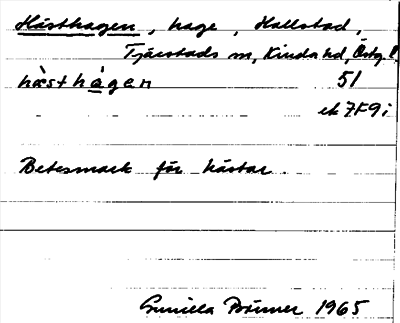 Hästhagen, hage, Hallstad,
Tjärstads sn, Kinda hd, Östg. l.
hæ̀sthágen 51
ek 7F9i
Betesmark för hästar.
Gunilla 1965